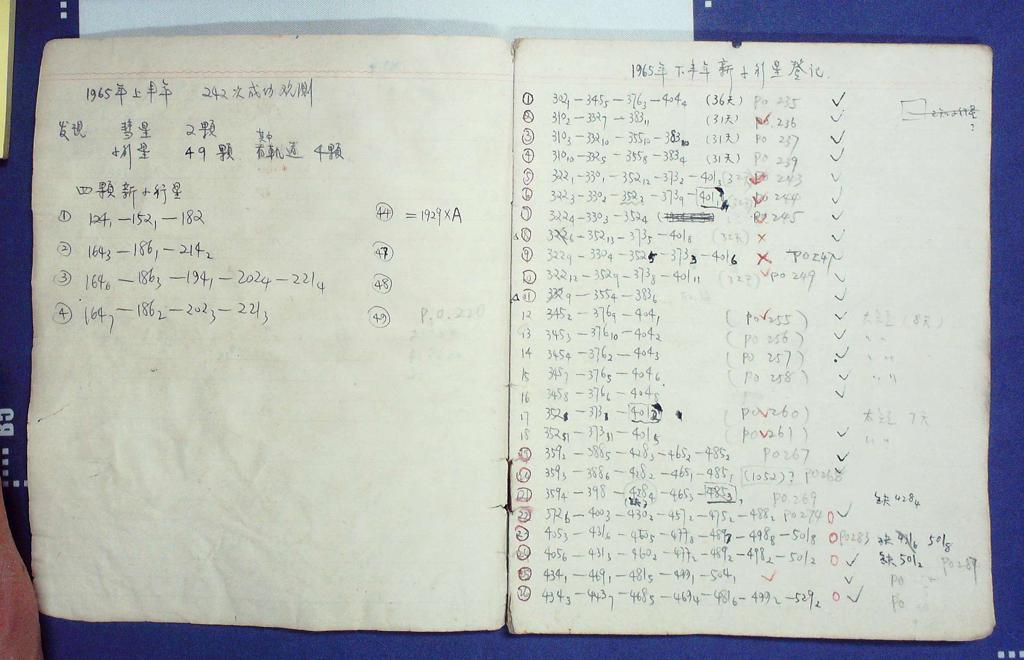 1965年上半年 242次成功观测
发现 彗星 2颗
小行星 49颗 其中有軌道 4颗
四颗新小行星
① 124₁—152₁—182 ㊹ =1929XA
② 164₃—186₁—214₂ ㊼
③ 164₆—186₃—194₁—202₄—221₄ ㊽
④ 164₇—186₂—202₃—221₃ ㊾ P.O.220
1965年下半年新小行星登记
① 345₅—376₃—404₄ (36天) PO 235 ✓
② 310₂—332₇—383₁₁ (31天) PO.236 ✓
③ 310₃—332₁₀—355₁₀—383₁₀ (31天) PO 237 ✓
④ 310₁₀—332₅—355₈—383₄ (31天) PO 239 ✓
⑤ 322₁—330₁—352₁₂—373₂—401₁ 243 ✓
⑥ 322₃—330₂—352₃—373₉—401₁ PO 244 ✓
⑦ 322₄—330₃—352₄ PO 245 ✓
⑧ 352₁₃—373₅—401₈ (32天) × ✓
⑨ 322₉—330₄—352₅—373₃—401₆ × PO247 ✓
⑩ 322₁₂—352₉—373₈—401₁₁ (32天) ✓ PO 249 ✓
⑪ 355₄—383₆ ✓
12 345₂—376₉—404₁ (PO 255) ✓ (8天)
13 345₃—376₁₀—404₂ (PO 256) ✓ " "
14 345₄—376₂—404₃ (PO 257) ✓ " "
15 345₇—376₅—404₆ (PO 258) ✓ " "
16 345₈—376₆—404₈ ✓
17 401₂ (PO 260) 7天
18 401₅ (PO 261) ✓ " "
⑲ 359₃—388₅—428₃—465₂—485₂ PO267 ✓
⑳ 359₃—388₆—428₂—465₁—485₁ (1052)? PO268 ✓
㉑ 359₄—398—428₄—465₃—485₃ PO.269 缺428₄
㉒ 372₆—400₃—430₂—457₂—475₂—488₂ PO274 0 ✓
㉓ 405₃—431₆—477₈—489₇—498₈—501₈ 0 PO283 缺431₆ 501₈
㉔ 405₆—431₃—460₂—477₂—489₂—498₂—501₂ 0 ✓ 缺501₂ PO289
㉕ 434₁—469₁—481₅—499₁—504₁ ✓ ✓ PO
㉖ 434₃—443₇—468₅—469₄—481₆—499₂—529₂ 0 ✓ PO